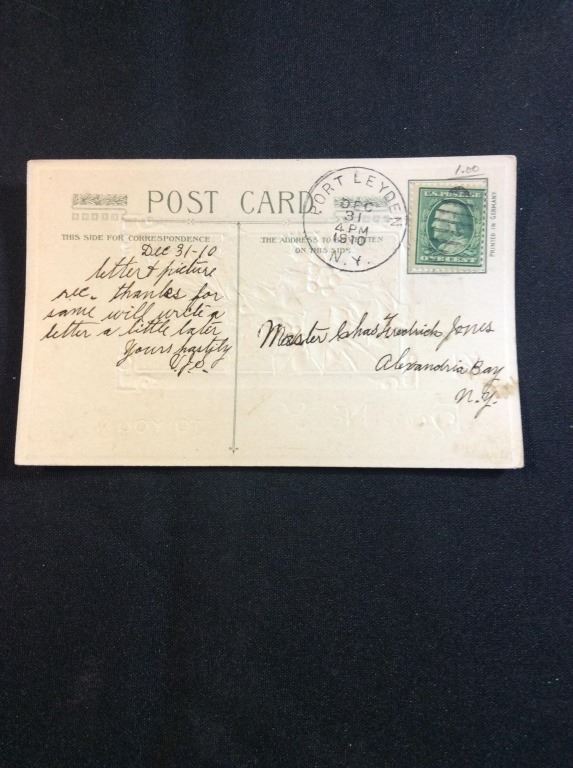 1.00
POST CARD
PORT LEYDEN
DEC
31
4 PM
1910
N.Y.
U.S. POSTAGE
ONE CENT
PRINTED IN GERMANY
THIS SIDE FOR CORRESPONDENCE
THE ADDRESS TO BE WRITTEN
ON THIS SIDE
Dec 31-10
letter & picture
rec. thanks for
same will write a
letter a little later
Yours hastily
Master Chas Fredrick Jones
Alexandria Bay
N.Y.
TO YOU